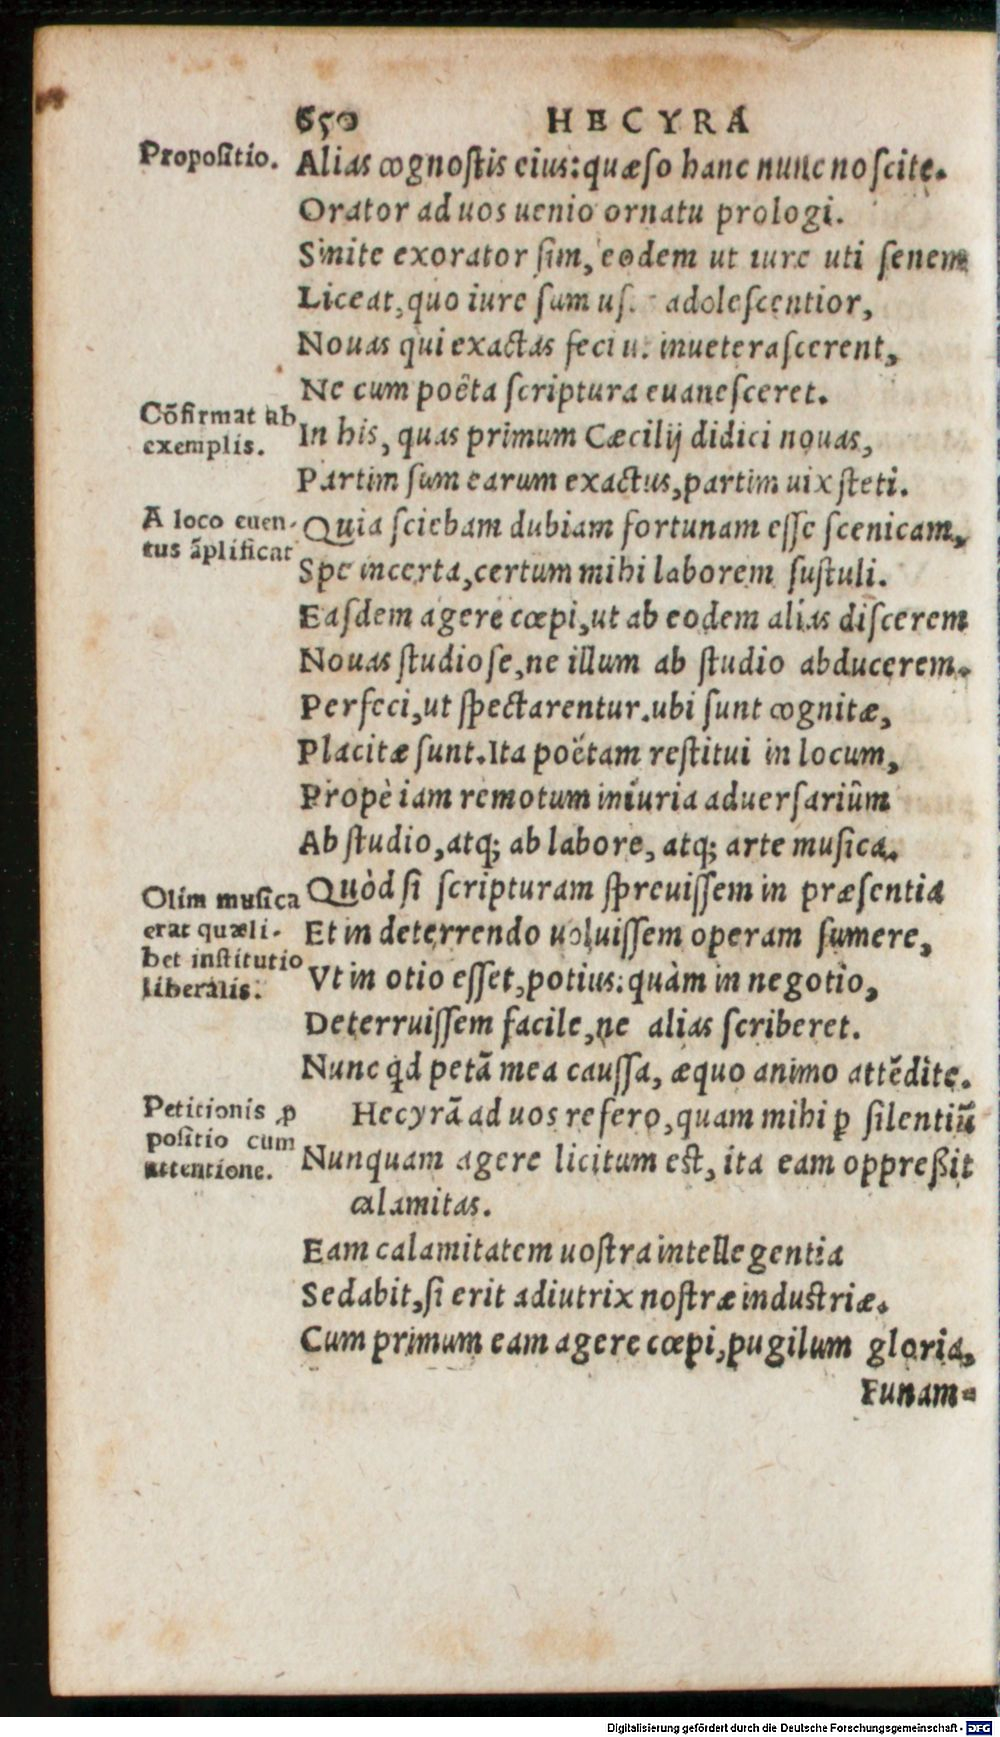 650 HECYRA
Propositio.
Alias cognostis eius: quæso hanc nunc noscite.
Orator ad uos uenio ornatu prologi.
Sinite exorator sim, eodem ut iure uti senem
Liceat, quo iure sum adolescentior,
Nouas qui exactas feci inueterascerent,
Ne cum poëta scriptura euanesceret.
Cōfirmat ab
exemplis.
In his, quas primum Cæcilij didici nouas,
Partim sum earum exactus, partim uix steti.
A loco euen-
tus āplificat
Quia sciebam dubiam fortunam esse scenicam,
Spe incerta, certum mihi laborem sustuli.
Easdem agere cœpi, ut ab eodem alias discerem
Nouas studiose, ne illum ab studio abducerem.
Perfeci, ut spectarentur. ubi sunt cognitæ,
Placitæ sunt. Ita poëtam restitui in locum,
Propè iam remotum iniuria aduersariûm
Ab studio, atq; ab labore, atq; arte musica.
Olim musica
erat quæli-
bet institutio
liberalis.
Quòd si scripturam spreuissem in præsentia
Et in deterrendo uoluissem operam sumere,
Vt in otio esset, potius: quàm in negotio,
Deterruissem facile, ne alias scriberet.
Nunc qd petā mea caussa, æquo animo attēdite.
Petitionis ꝓ
positio cum
attentione.
Hecyrā ad uos refero, quam mihi ꝑ silentiū
Nunquam agere licitum est, ita eam oppreßit
calamitas.
Eam calamitatem uostra intellegentia
Sedabit, si erit adiutrix nostræ industriæ.
Cum primum eam agere cœpi, pugilum gloria,
Funam-
Digitalisierung gefördert durch die Deutsche Forschungsgemeinschaft - DFG